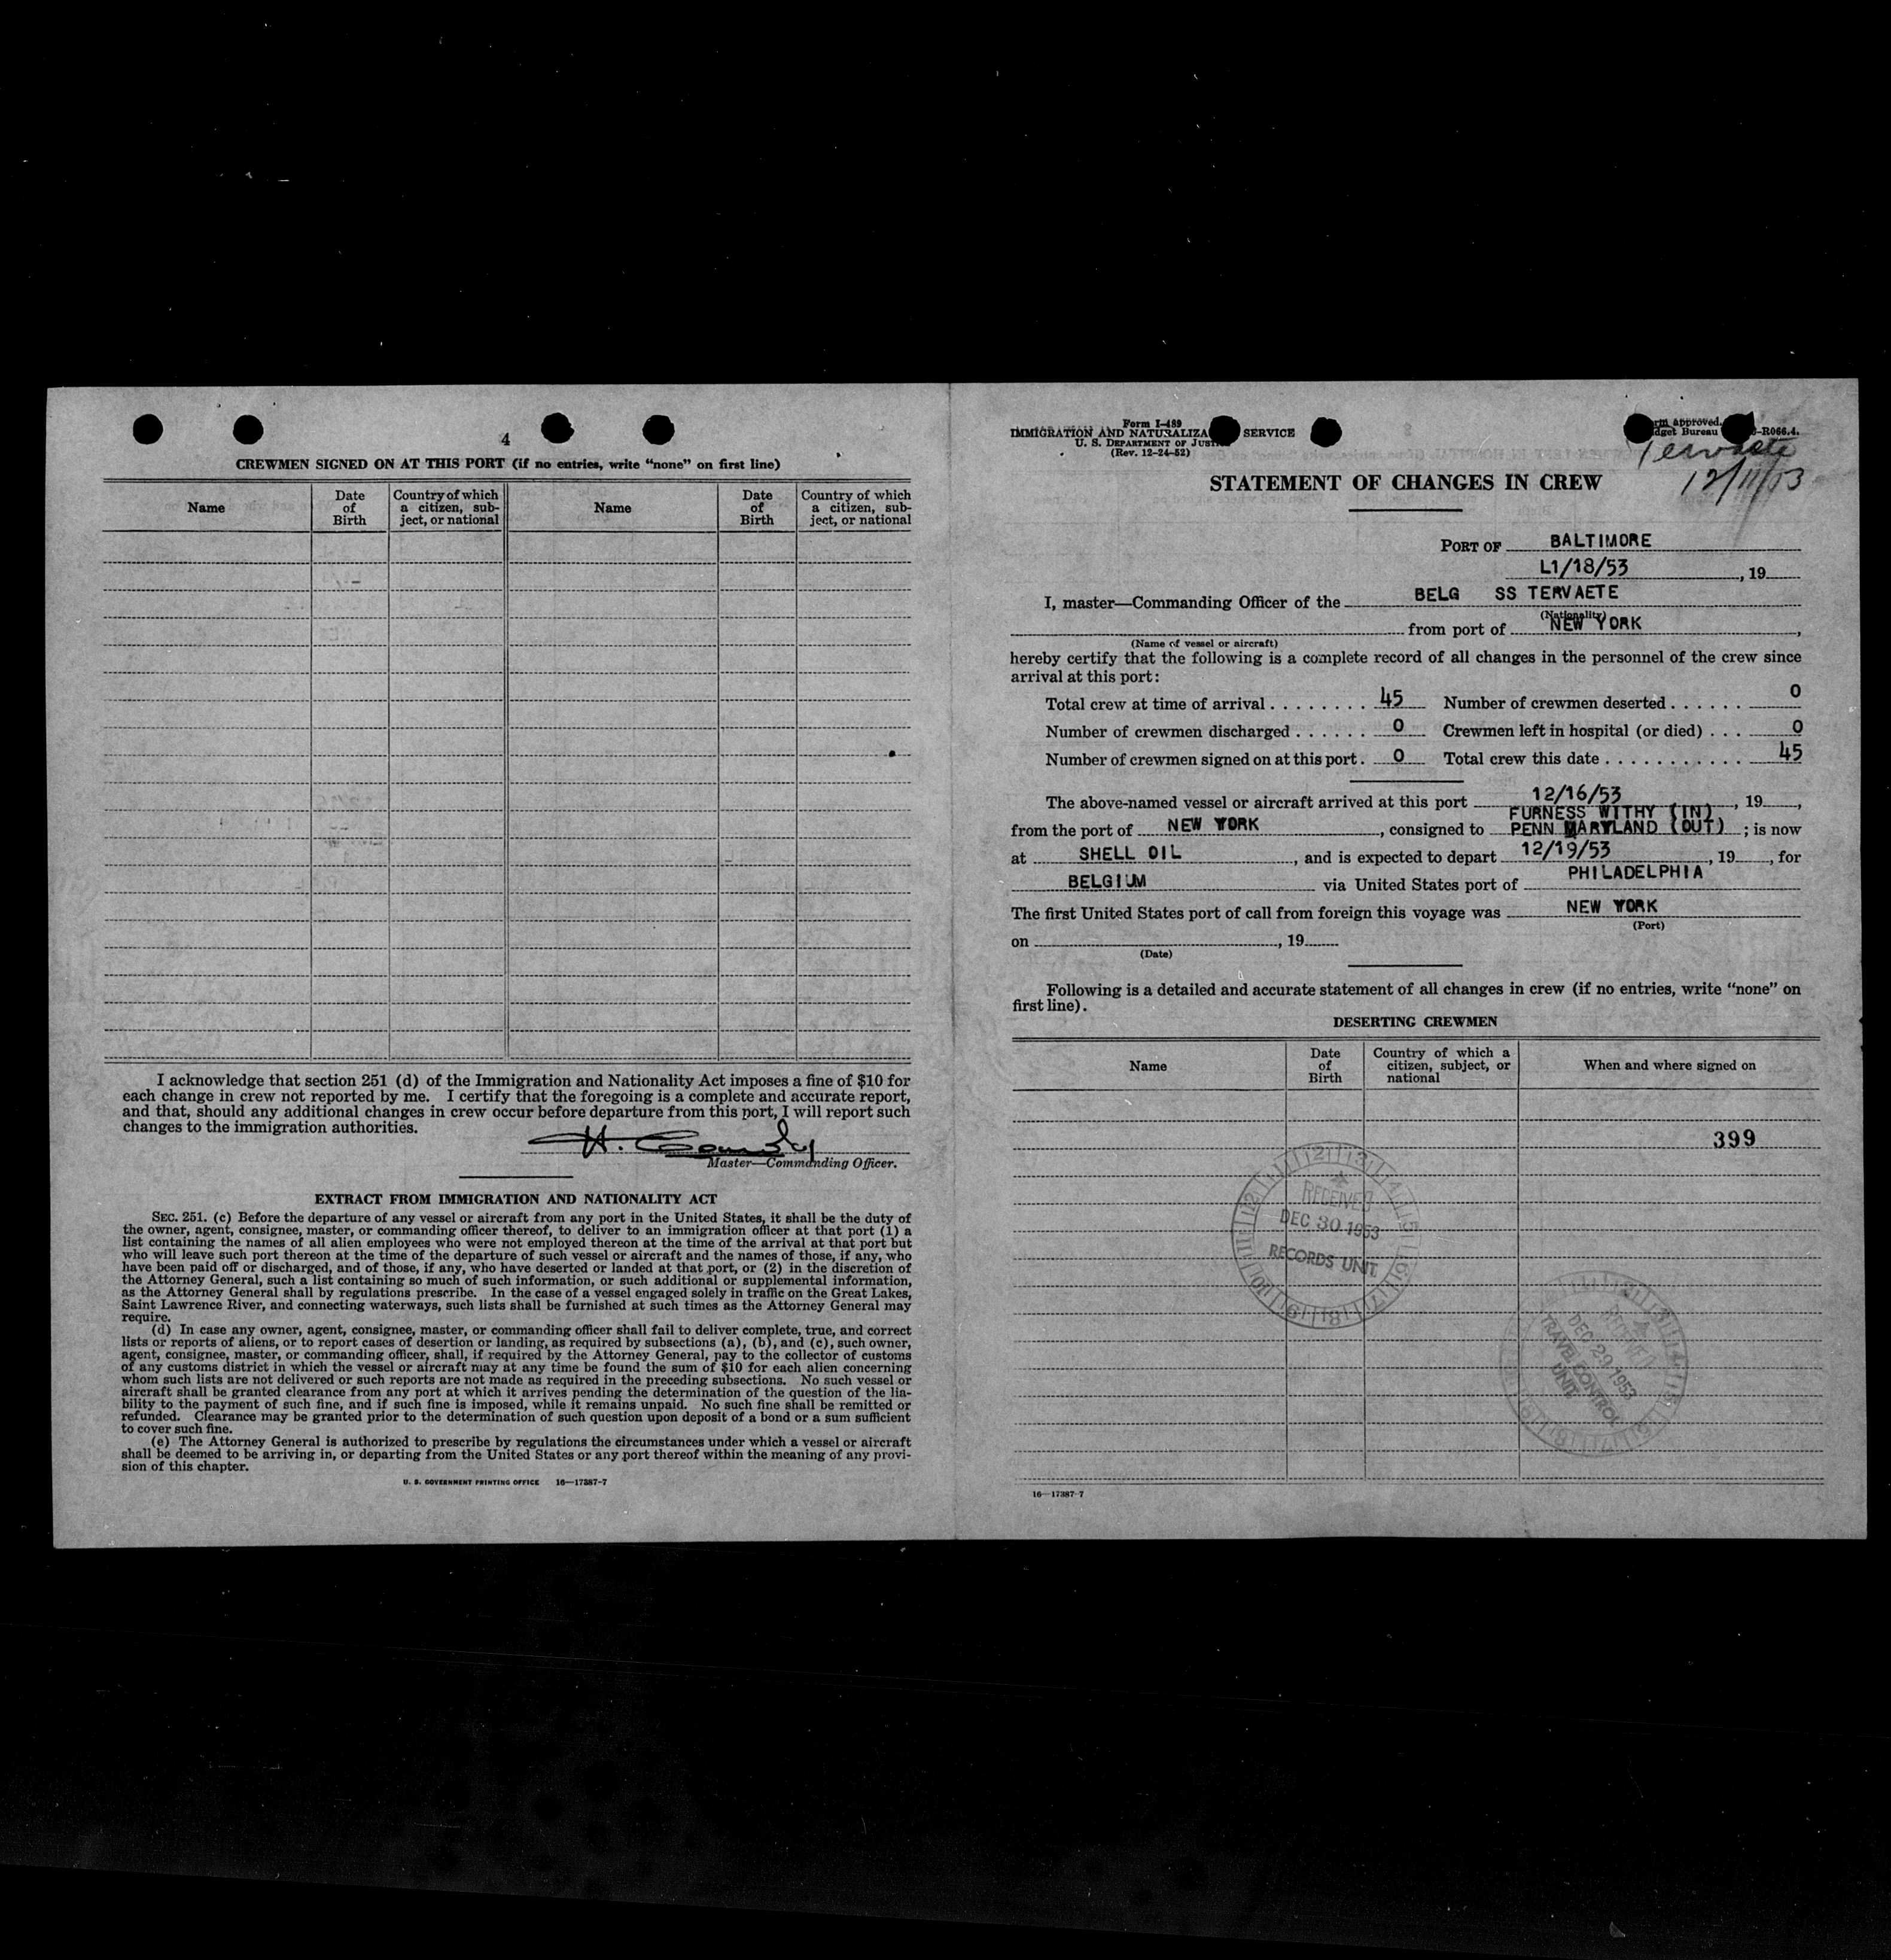 4
CREWMEN SIGNED ON AT THIS PORT (if no entries, write “none” on first line)
Name
Date of Birth
Country of which a citizen, sub-ject, or national
Name
Date of Birth
Country of which a citizen, sub-ject, or national
I acknowledge that section 251 (d) of the Immigration and Nationality Act imposes a fine of $10 for
each change in crew not reported by me. I certify that the foregoing is a complete and accurate report,
and that, should any additional changes in crew occur before departure from this port, I will report such
changes to the immigration authorities.
H.
Master—Commanding Officer.
EXTRACT FROM IMMIGRATION AND NATIONALITY ACT
SEC. 251. (c) Before the departure of any vessel or aircraft from any port in the United States, it shall be the duty of
the owner, agent, consignee, master, or commanding officer thereof, to deliver to an immigration officer at that port (1) a
list containing the names of all alien employees who were not employed thereon at the time of the arrival at that port but
who will leave such port thereon at the time of the departure of such vessel or aircraft and the names of those, if any, who
have been paid off or discharged, and of those, if any, who have deserted or landed at that port, or (2) in the discretion of
the Attorney General, such a list containing so much of such information, or such additional or supplemental information,
as the Attorney General shall by regulations prescribe. In the case of a vessel engaged solely in traffic on the Great Lakes,
Saint Lawrence River, and connecting waterways, such lists shall be furnished at such times as the Attorney General may
require.
(d) In case any owner, agent, consignee, master, or commanding officer shall fail to deliver complete, true, and correct
lists or reports of aliens, or to report cases of desertion or landing, as required by subsections (a), (b), and (c), such owner,
agent, consignee, master, or commanding officer, shall, if required by the Attorney General, pay to the collector of customs
of any customs district in which the vessel or aircraft may at any time be found the sum of $10 for each alien concerning
whom such lists are not delivered or such reports are not made as required in the preceding subsections. No such vessel or
aircraft shall be granted clearance from any port at which it arrives pending the determination of the question of the lia-
bility to the payment of such fine, and if such fine is imposed, while it remains unpaid. No such fine shall be remitted or
refunded. Clearance may be granted prior to the determination of such question upon deposit of a bond or a sum sufficient
to cover such fine.
(e) The Attorney General is authorized to prescribe by regulations the circumstances under which a vessel or aircraft
shall be deemed to be arriving in, or departing from the United States or any port thereof within the meaning of any provi-
sion of this chapter.
U. S. GOVERNMENT PRINTING OFFICE 16—17387-7
Form I-489
IMMIGRATION AND NATURALIZA SERVICE
U. S. DEPARTMENT OF JUST
(Rev. 12-24-52)
rm approved.
dget Bureau -R066.4.
Tervaete
12/11/53
STATEMENT OF CHANGES IN CREW
PORT OF BALTIMORE
L1/18/53, 19
I, master—Commanding Officer of the BELG SS TERVAETE
(Nationality)
from port of NEW YORK,
(Name of vessel or aircraft)
hereby certify that the following is a complete record of all changes in the personnel of the crew since
arrival at this port:
Total crew at time of arrival 45 Number of crewmen deserted 0
Number of crewmen discharged 0 Crewmen left in hospital (or died) 0
Number of crewmen signed on at this port. 0 Total crew this date 45
The above-named vessel or aircraft arrived at this port 12/16/53, 19,
FURNESS WITHY (IN)
from the port of NEW YORK, consigned to PENN MARYLAND (OUT); is now
at SHELL OIL, and is expected to depart 12/19/53, 19, for
BELGIUM via United States port of PHILADELPHIA
The first United States port of call from foreign this voyage was NEW YORK
(Port)
on , 19
(Date)
Following is a detailed and accurate statement of all changes in crew (if no entries, write “none” on
first line).
DESERTING CREWMEN
Name
Date of Birth
Country of which a citizen, subject, or national
When and where signed on
399
RECEIVED
DEC 30 1953
RECORDS UNIT
RECEIVED
DEC 29 1953
TRAVEL CONTROL
UNIT
16—17387-7